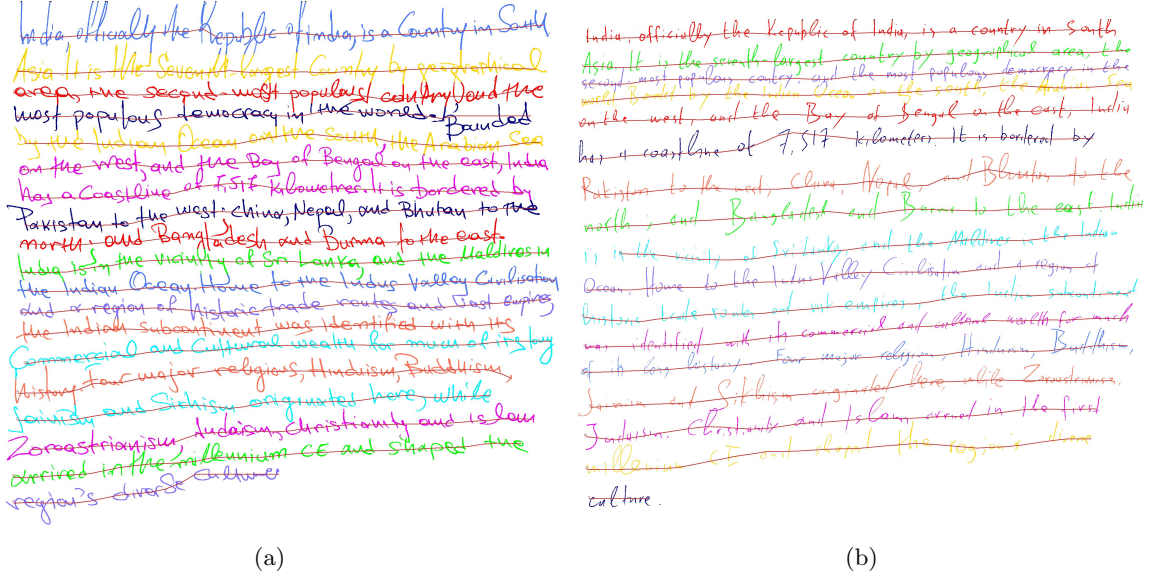 India, officially the Republic of India, is a Country in South
Asia It is the Seventh-largest Country by geographical
area, the second-most populous country, and the
most populous democracy in the world. Bounded
by the Indian Ocean on the South, the Arabian Sea
on the west, and the Bay of Bengal on the east, India
has a Coastline of 7,517 kilometres. It is bordered by
Pakistan to the west. China, Nepal, and Bhutan to the
north. and Bangladesh and Burma to the east.
India is in the vicinity of Sri Lanka, and the Maldives in
the Indian Ocean. Home to the Indus Valley Civilisation
and a region of historic trade routes and vast empires,
the Indian subcontinent was identified with its
Commercial and Cultural wealth for much of its long
history Four major religions, Hinduism, Buddhism,
Jainism and Sikhism originated here, while
Zoroastrianism, Judaism, Christianity and Islam
arrived in the millennium CE and shaped the
region's diverse culture
(a)
India, officially the Republic of India, is a country in South
Asia It is the seventh-largest country by geographical area, the
second-most populous country, and the most populous democracy in the
world Bounded by the Indian Ocean on the south, the Arabian Sea
on the west, and the Bay of Bengal on the east, India
has a coastline of 7,517 kilometers. It is bordered by
Pakistan to the west, China, Nepal, and Bhutan to the
north; and Bangladesh and Burma to the east. India
is in the vicinity of Sri Lanka and the Maldives in the Indian
Ocean. Home to the Indus Valley Civilisation and a region of
historic trade routes and vast empires, the Indian subcontinent
was identified with its commercial and cultural wealth for much
of its long history. Four major religions, Hinduism, Buddhism,
Jainism and Sikhism originated here, while Zoroastrianism,
Judaism, Christianity and Islam arrived in the first
millennium CE and shaped the region's diverse
culture.
(b)